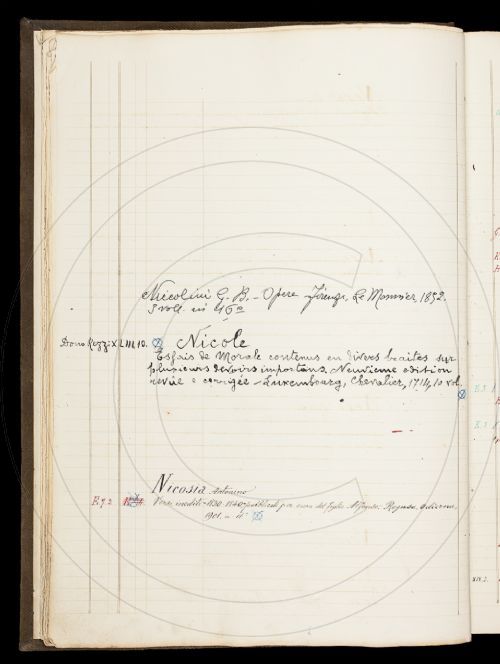 Niccolini G. B. - Opere Firenze, Le Monnier, 1852.
3 voll. in 16°
Dono Rezz. X LIII 10. Nicole
Essais de Morale contenus en divers traités sur
plusieurs devoirs importans. Neuvieme edition
revüe e corrigée - Luxembourg, Chevalier, 1714, 10 vol.
Nicosia Antonino
E. 7. 2 Versi inediti - 1830-1840 - pubblicati per cura del figlio Ragusa,
1901. - 4°
XIV. 2.